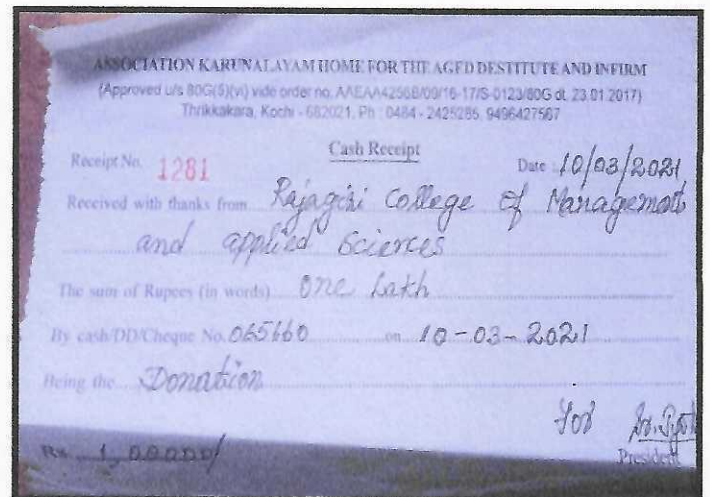 ASSOCIATION KARUNALAYAM HOME FOR THE AGED DESTITUTE AND INFIRM
(Approved u/s 80G(5)(vi) vide order no. AAEAA4256B/09/16-17/S-0123/80G dt. 23.01.2017)
Thrikkakara, Kochi - 682021, Ph : 0484 - 2425285, 9496427567
Cash Receipt
Receipt No. 1281 Date : 10/03/2021
Received with thanks from Rajagiri College of Management
and applied Sciences
The sum of Rupees (in words) One Lakh
By cash/DD/Cheque No. 065660 on 10-03-2021
Being the Donation
for
Rs. 1,00000/ President